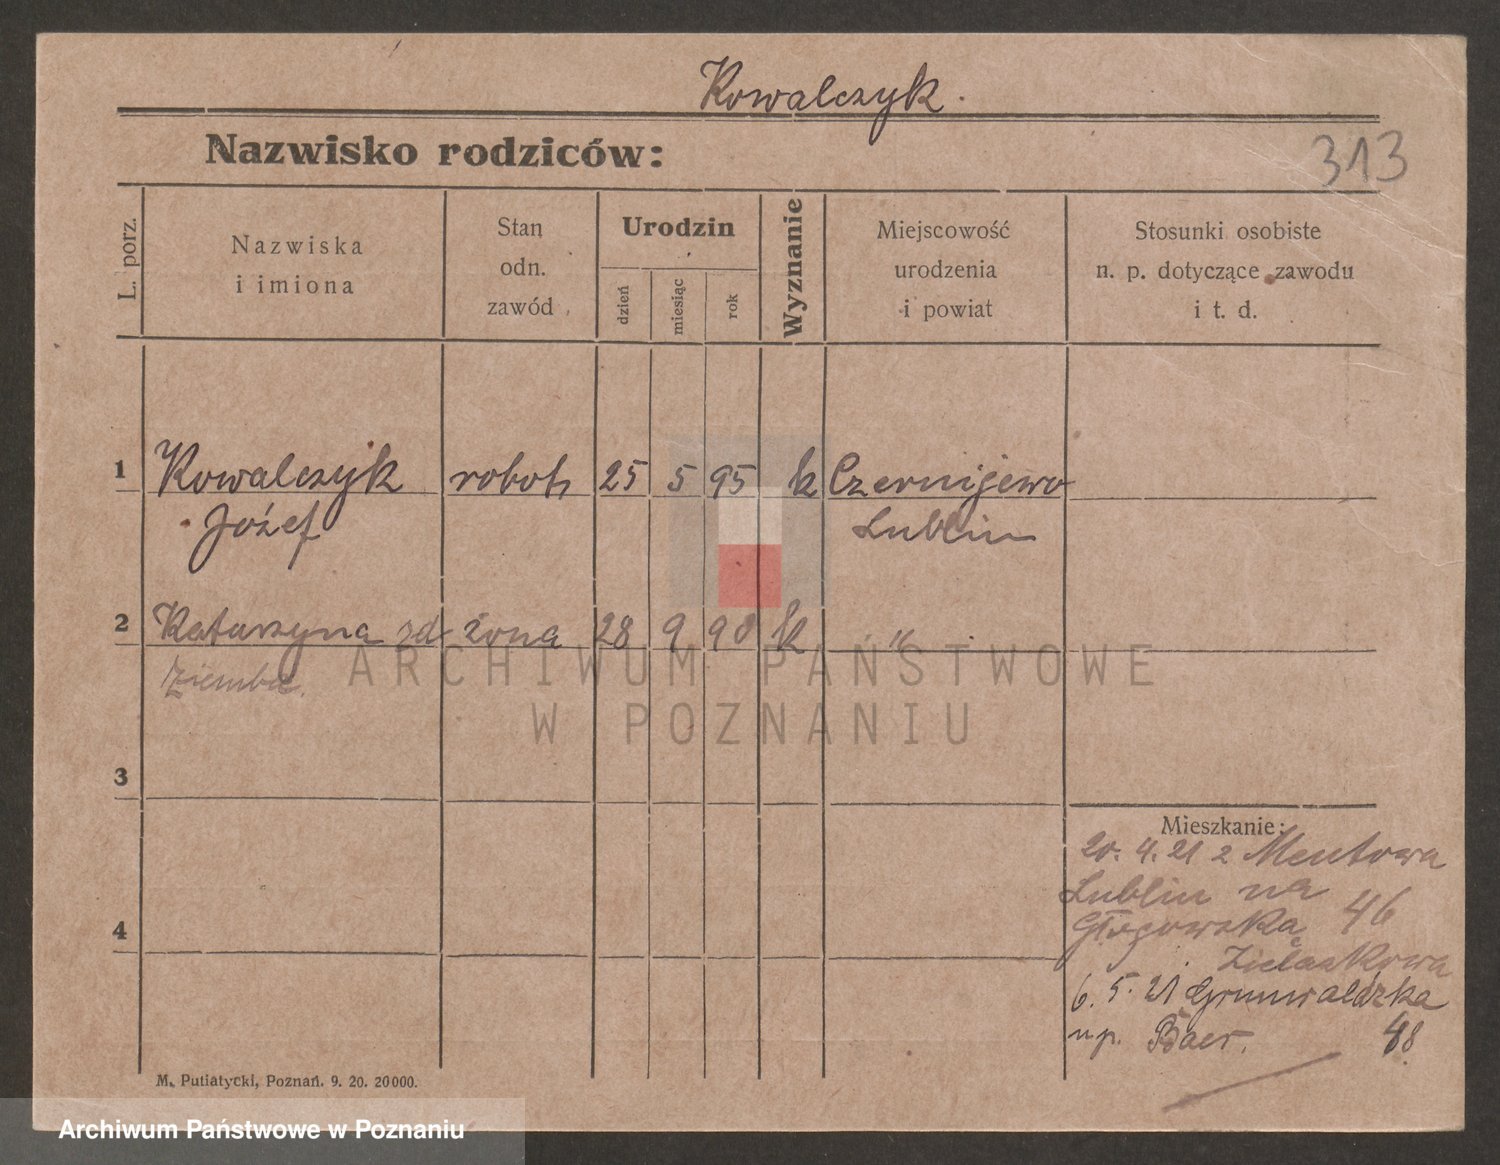 Kowalczyk.
313
Nazwisko rodziców:
L. porz.
Nazwiska
i imiona
Stan
odn.
zawód
Urodzin
dzień
miesiąc
rok
Wyznanie
Miejscowość
urodzenia
i powiat
Stosunki osobiste
n. p. dotyczące zawodu
i t. d.
1 Kowalczyk robotn 25 5 95 k Czernijewo
Józef Lublin
2 Katarzyna zd żona 28 9 98 k "
Ziemba.
ARCHIWUM PAŃSTWOWE
W POZNANIU
3
Mieszkanie:
20. 4. 21 z
Lublin na
4
Głogowska 46
6. 5. 21 Grunwaldzka
np. Baer. 48
M. Putiatycki, Poznań. 9. 20. 20000.
Archiwum Państwowe w Poznaniu